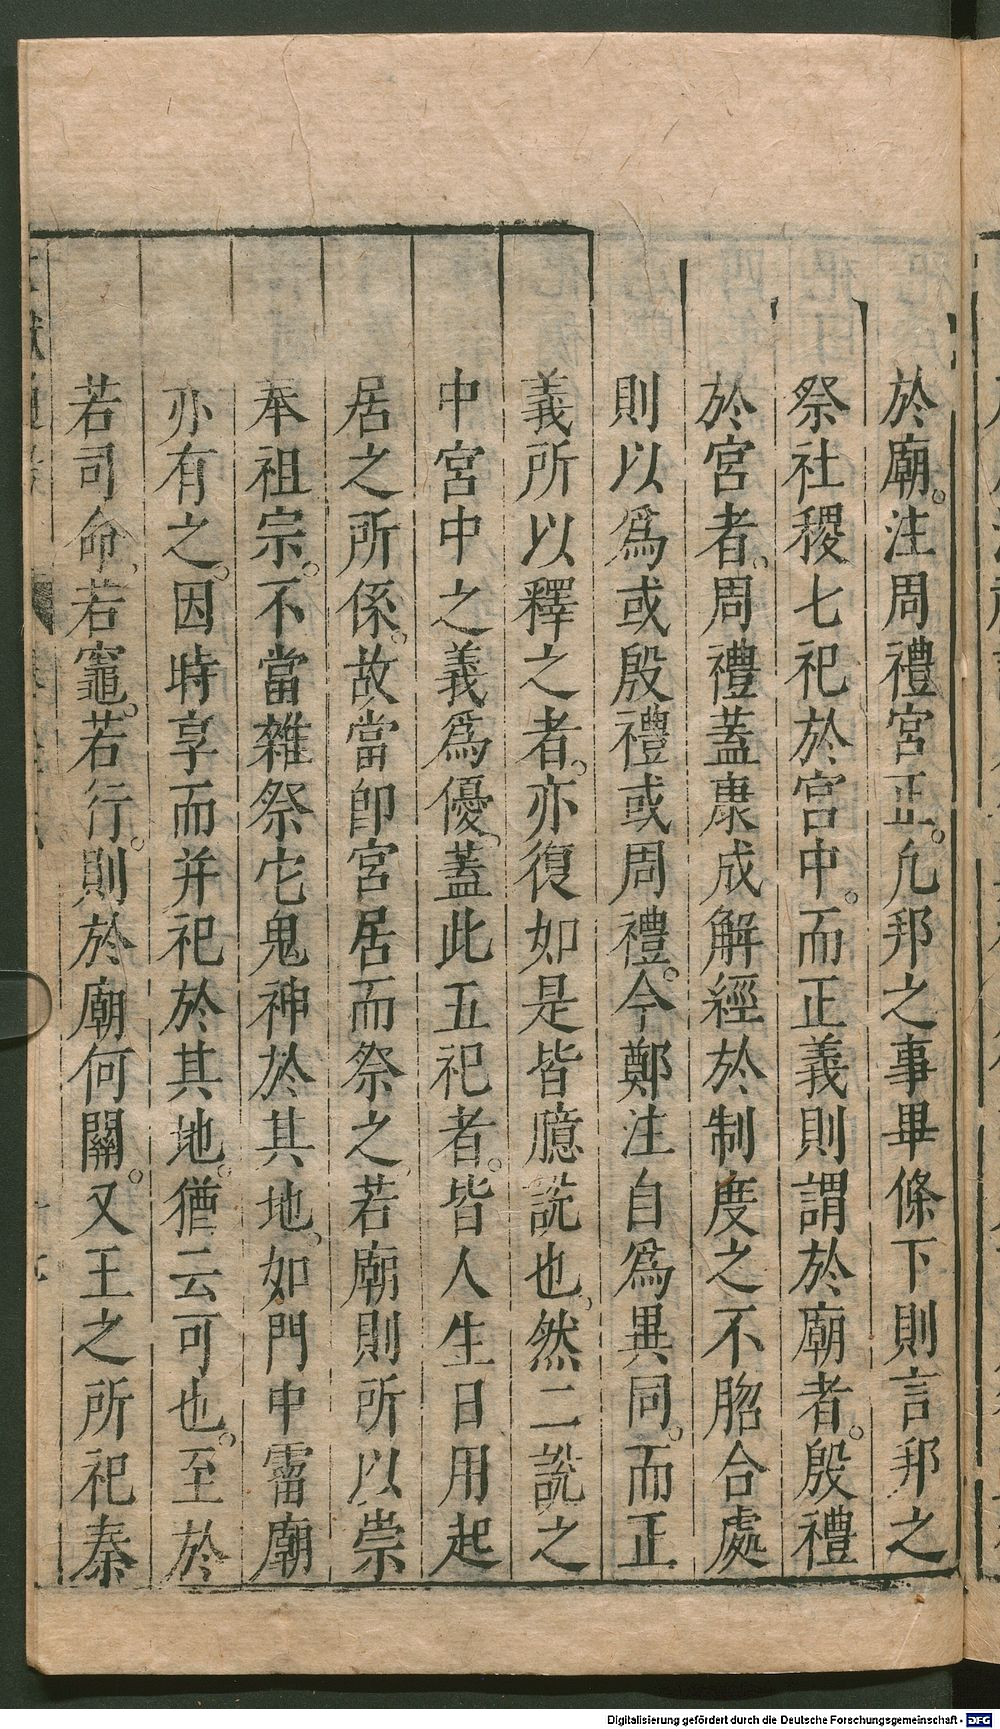 於廟。注周禮宮正。凢邦之事畢條下則言邦之
祭社稷七祀於宮中。而正義則謂於廟者。殷禮
於宮者。周禮蓋康成解經於制度之不脗合處
則以爲或殷禮或周禮。今鄭注自爲異同。而正
義所以釋之者。亦復如是皆臆説也。然二説之
中宮中之義爲優。蓋此五祀者。皆人生日用起
居之所係。故當即宮居而祭之。若廟則所以崇
奉祖宗。不當雜祭它鬼神於其地。如門中霤廟
亦有之。因時享而并祀於其地。猶云可也。至於
若司命。若竈。若行。則於廟何關。又王之所祀泰
Digitalisierung gefördert durch die Deutsche Forschungsgemeinschaft - DFG